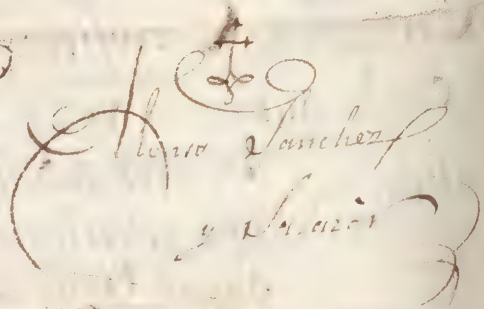 Alonso Sanchez
y